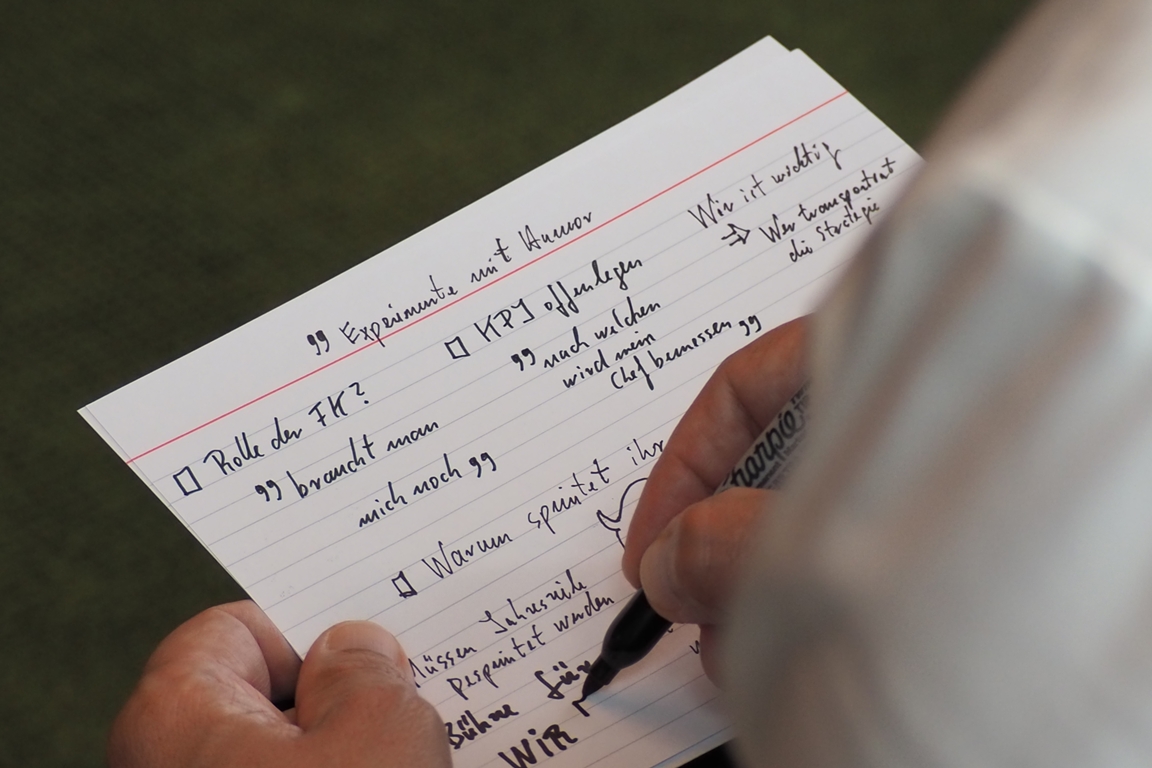 " Experimente mit Humor
Wir ist wichtig
⇒ Wer transportiert
die Strategie
□ KPI offenlegen
" nach welchen
wird mein
Chef bemessen "
□ Rolle der FK?
" braucht man
mich noch "
□ Warum sprintet ihr
Müssen Jahresziele
gesprintet werden
Bühne für
WIR
Sharpie